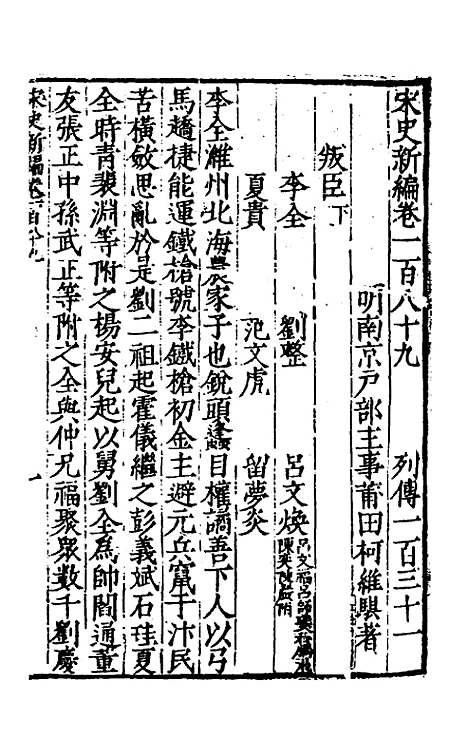 宋史新編卷一百八十九 列傳一百三十一
明南京戶部主事莆田柯維騏著
叛臣下
李全 劉整 呂文煥
夏貴 范文虎 留夢炎
李全濰州北海農家子也銳頭蠭目權譎善下人以弓
馬趫捷能運鐵槍號李鐵槍初金主避元兵竄于汴民
苦橫斂思亂於是劉二祖起霍儀繼之彭義斌石珪夏
全時青裴淵等附之楊安兒起以舅劉全為帥閻通重
友張正中孫武正等附之全與仲兄福聚眾數千劉慶
宋史新編卷一百八十九 一